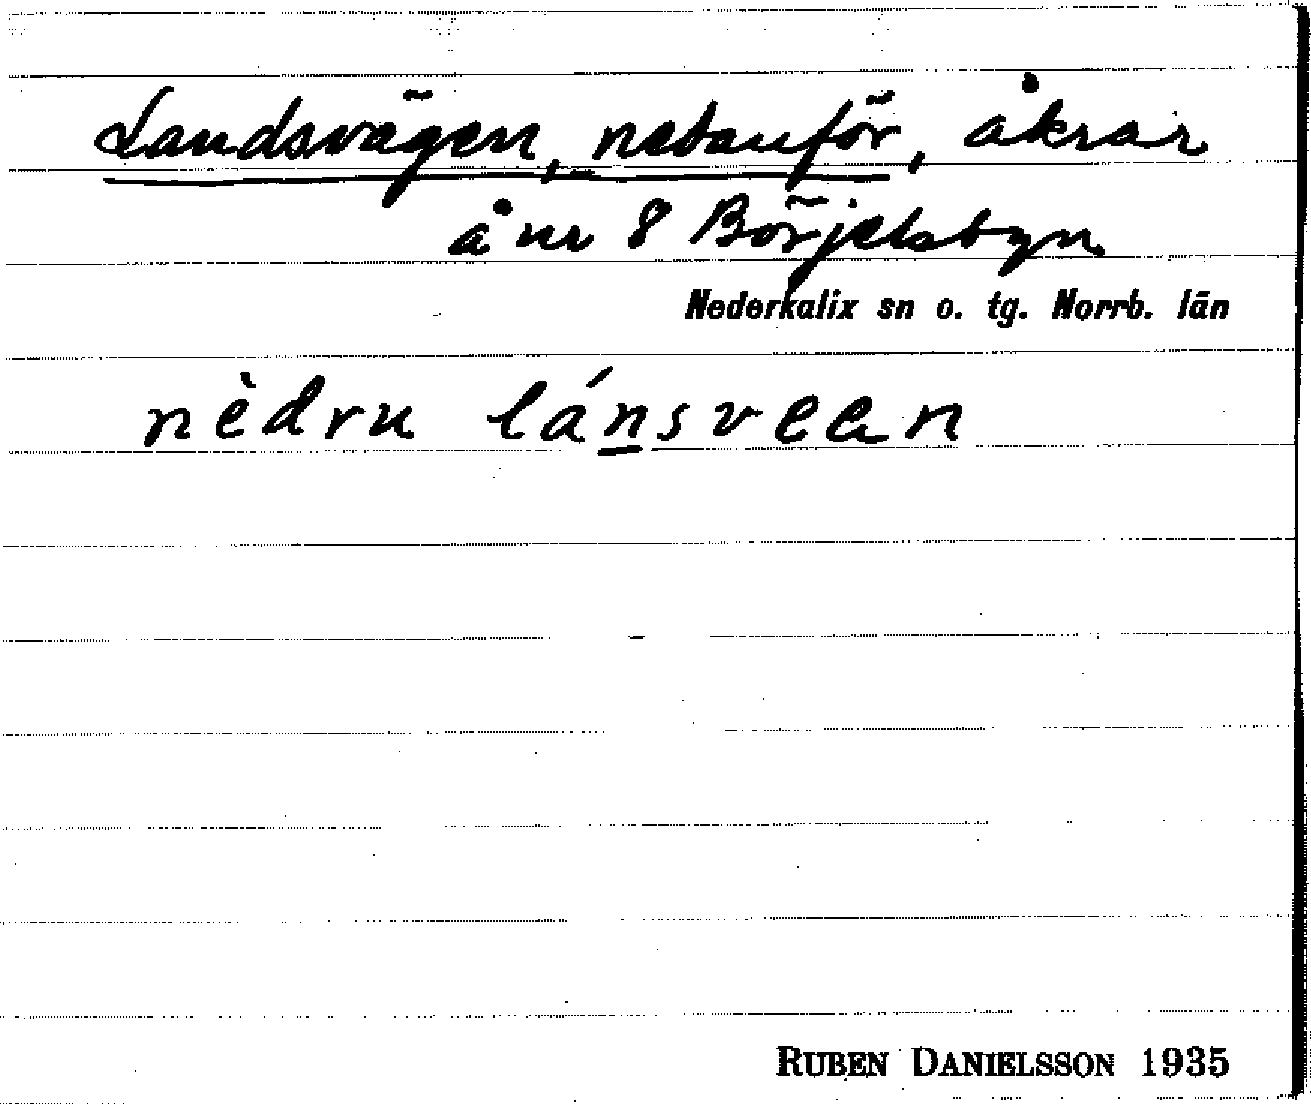 Landsvägen, nedanför, åkrar
å nr 8 Börjelsbyn
Nederkalix sn o. tg. Norrb. län
nèdru lánsveen
RUBEN DANIELSSON 1935